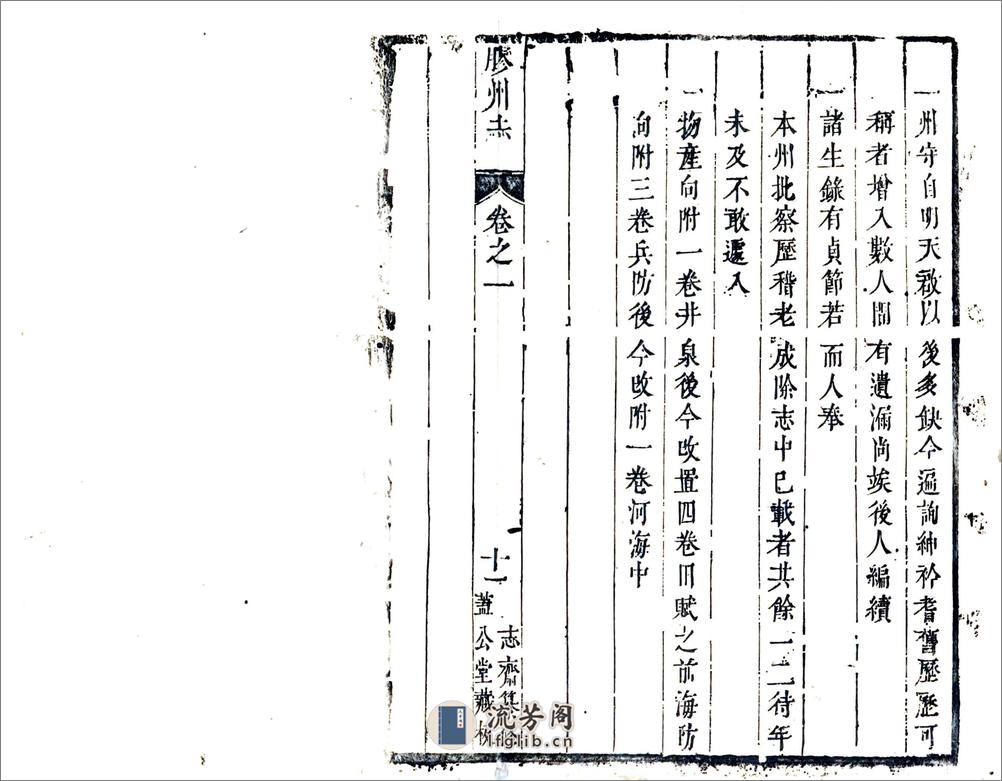 一州守自明天啟以後多缺今遍詢紳衿耆舊歷歷可
稱者增入數人間有遺漏尚俟後人編續
一諸生錄有貞節若而人奉
本州批察歷稽老成除志中已載者其餘一二待年
未及不敢遽入
一物產向附一卷井泉後今改置四卷田賦之前海防
向附三卷兵防後今改附一卷河海中
膠州志
卷之一
十一
志齋
蓋公堂藏板
流芳阁
lfglib.cn